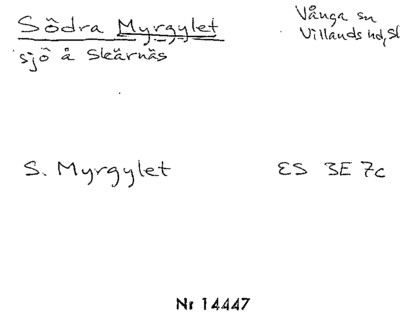 Södra Myrgylet
sjö å Skärnäs
Vånga sn
Villands hd, Sk
S. Myrgylet
ES 3E 7c
Nr 14447